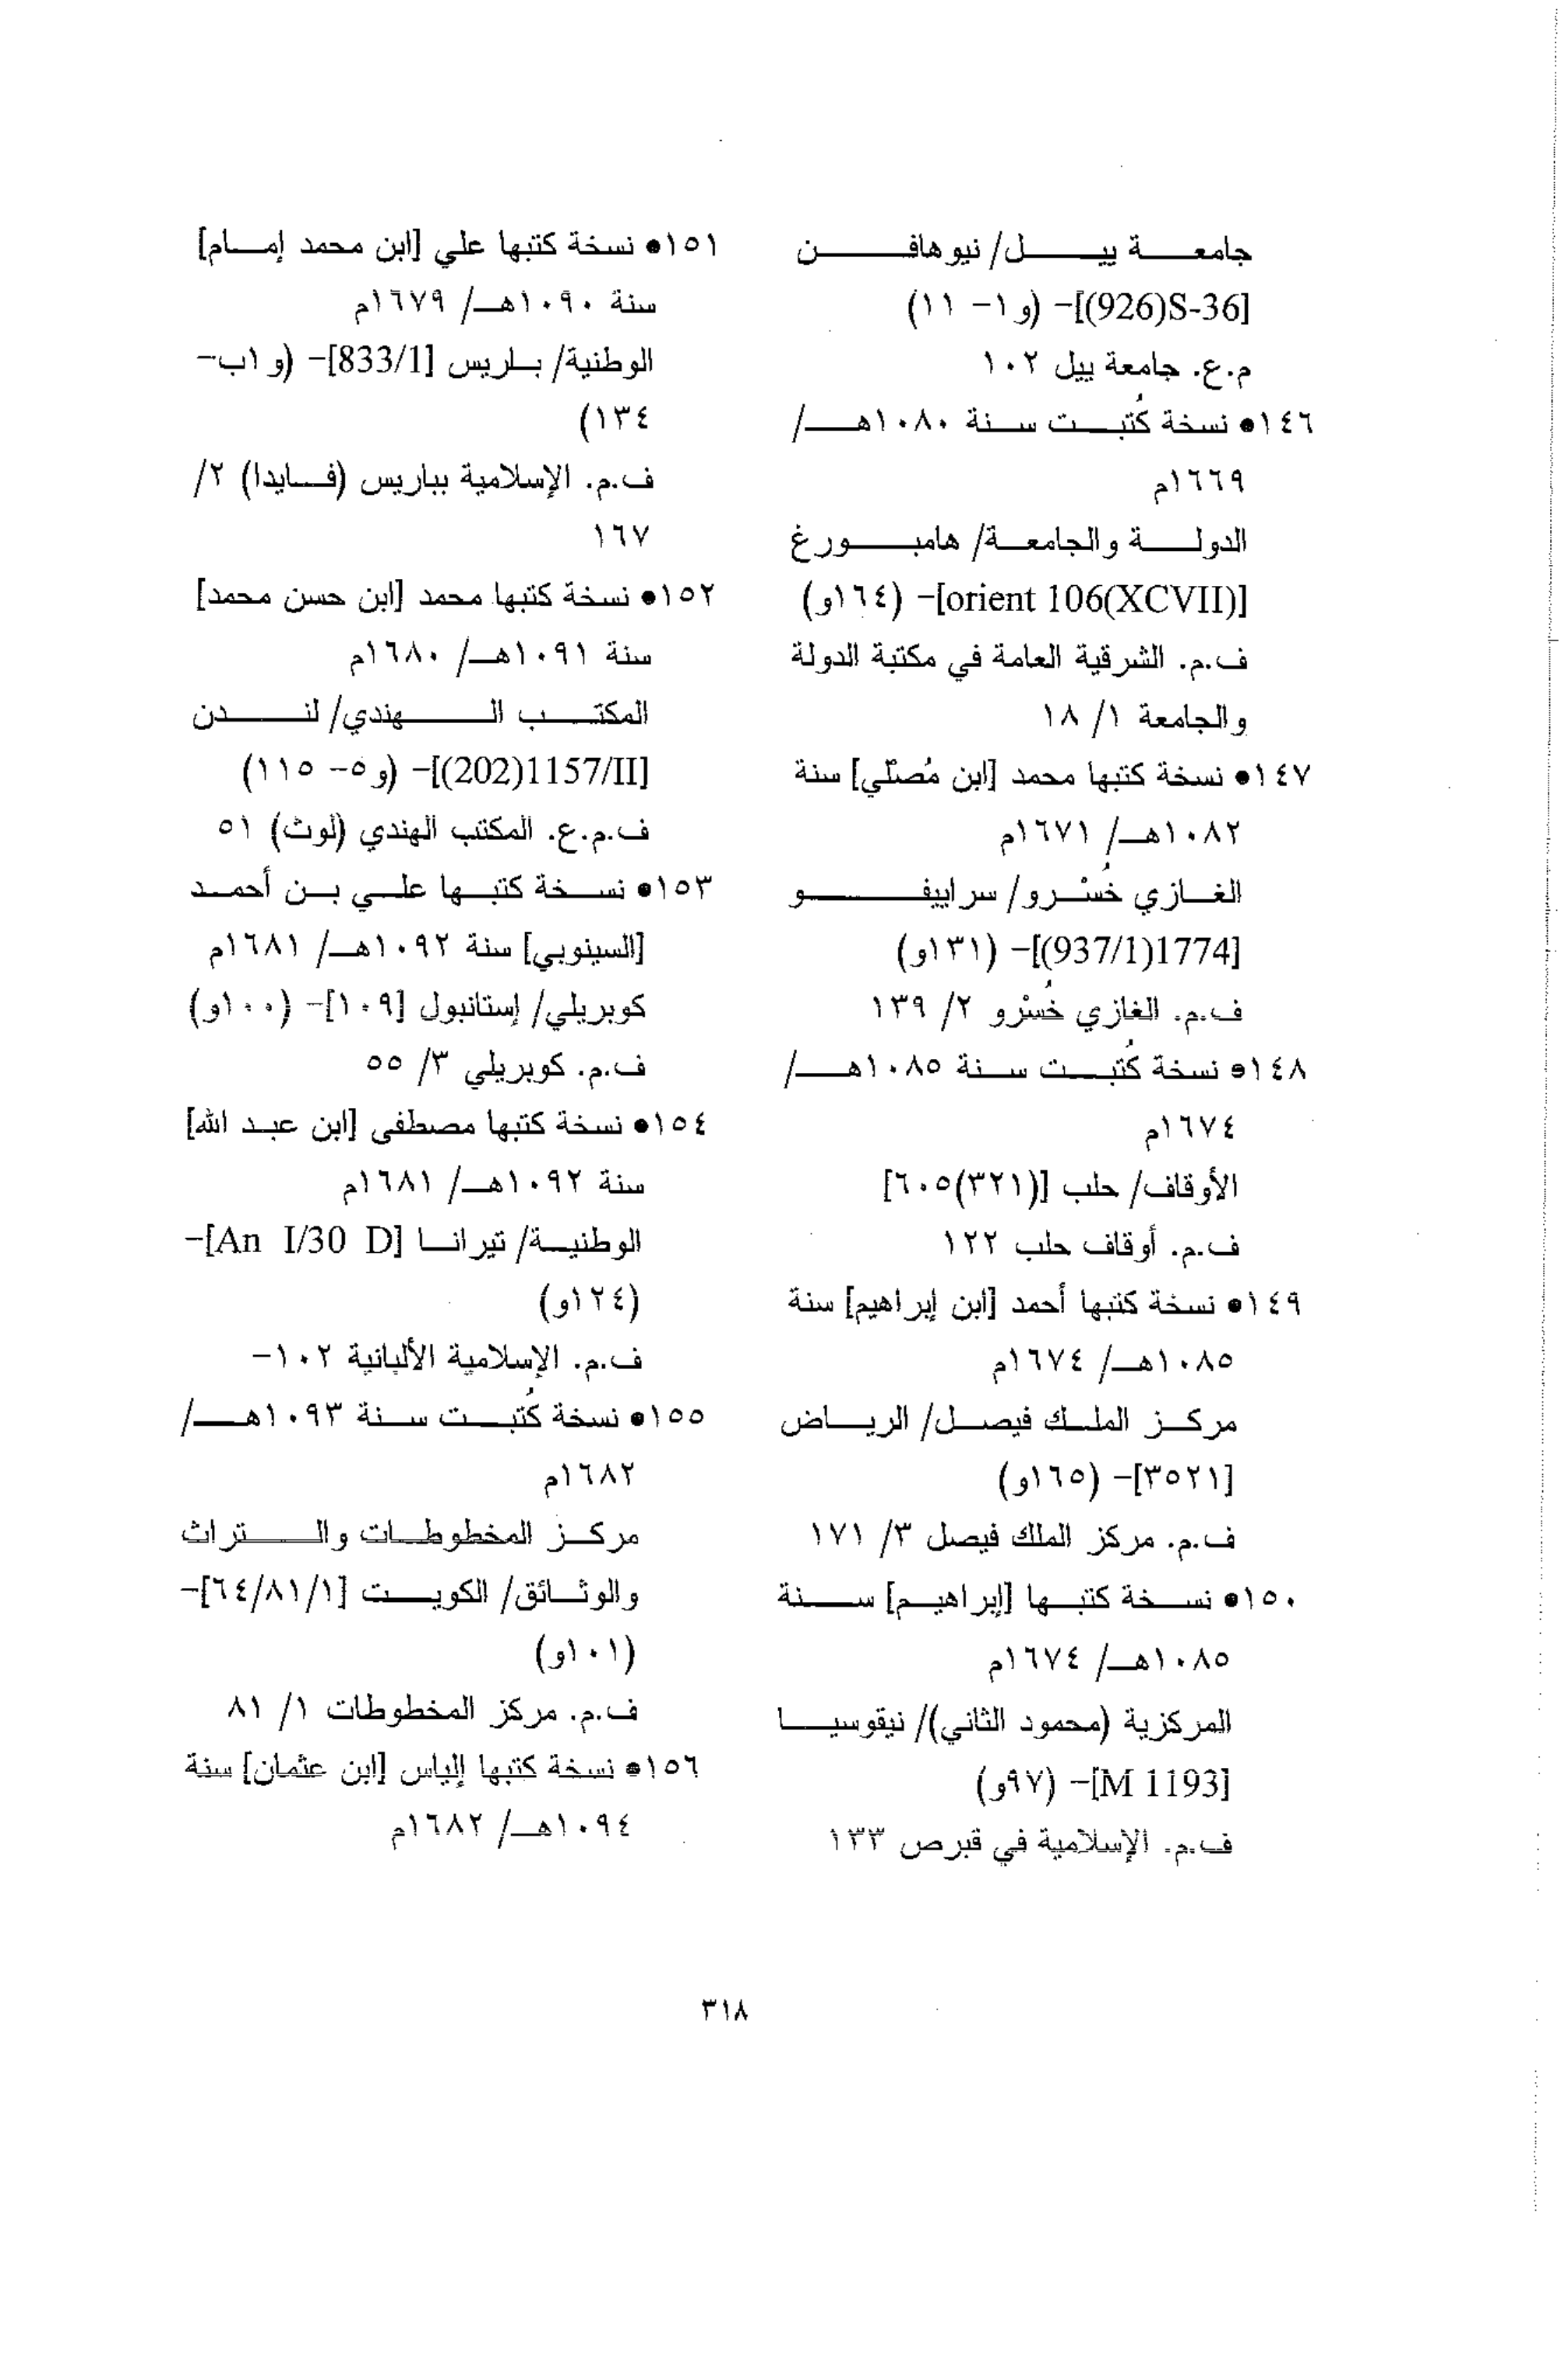 جامعة ييل/ نيوهافن
[S-36(926)]- (و١- ١١)
م.ع. جامعة ييل ١٠٢
١٤٦• نسخة كُتبت سنة ١٠٨٠هـ/
١٦٦٩م
الدولة والجامعة/ هامبورغ
[orient 106(XCVII)]- (١٦٤و)
ف.م. الشرقية العامة في مكتبة الدولة
والجامعة ١/ ١٨
١٤٧• نسخة كتبها محمد [ابن مُصلّي] سنة
١٠٨٢هـ/ ١٦٧١م
الغازي خُسْرو/ سراييفو
[1774(937/1)]- (١٣١و)
ف.م. الغازي خُسْرو ٢/ ١٣٩
١٤٨• نسخة كُتبت سنة ١٠٨٥هـ/
١٦٧٤م
الأوقاف/ حلب [(٣٢١)٦٠٥]
ف.م. أوقاف حلب ١٢٢
١٤٩• نسخة كتبها أحمد [ابن إبراهيم] سنة
١٠٨٥هـ/ ١٦٧٤م
مركز الملك فيصل/ الرياض
[٣٥٢١]- (١٦٥و)
ف.م. مركز الملك فيصل ٣/ ١٧١
١٥٠• نسخة كتبها [إبراهيم] سنة
١٠٨٥هـ/ ١٦٧٤م
المركزية (محمود الثاني)/ نيقوسيا
[M 1193]- (٩٧و)
ف.م. الإسلامية في قبرص ١٣٣
١٥١• نسخة كتبها علي [ابن محمد إمام]
سنة ١٠٩٠هـ/ ١٦٧٩م
الوطنية/ باريس [833/1]- (و١ب-
١٣٤)
ف.م. الإسلامية بباريس (فايدا) ٢/
١٦٧
١٥٢• نسخة كتبها محمد [ابن حسن محمد]
سنة ١٠٩١هـ/ ١٦٨٠م
المكتب الهندي/ لندن
[1157/II(202)]- (و٥- ١١٥)
ف.م.ع. المكتب الهندي (لوث) ٥١
١٥٣• نسخة كتبها علي بن أحمد
[السينوبي] سنة ١٠٩٢هـ/ ١٦٨١م
كوبريلي/ إستانبول [١٠٩]- (١٠٠و)
ف.م. كوبريلي ٣/ ٥٥
١٥٤• نسخة كتبها مصطفى [ابن عبد الله]
سنة ١٠٩٢هـ/ ١٦٨١م
الوطنية/ تيرانا [An I/30 D]-
(١٢٤و)
ف.م. الإسلامية الألبانية ١٠٢-
١٥٥• نسخة كُتبت سنة ١٠٩٣هـ/
١٦٨٢م
مركز المخطوطات والتراث
والوثائق/ الكويت [٦٤/٨١/١]-
(١٠١و)
ف.م. مركز المخطوطات ١/ ٨١
١٥٦• نسخة كتبها إلياس [ابن عثمان] سنة
١٠٩٤هـ/ ١٦٨٢م
٣١٨